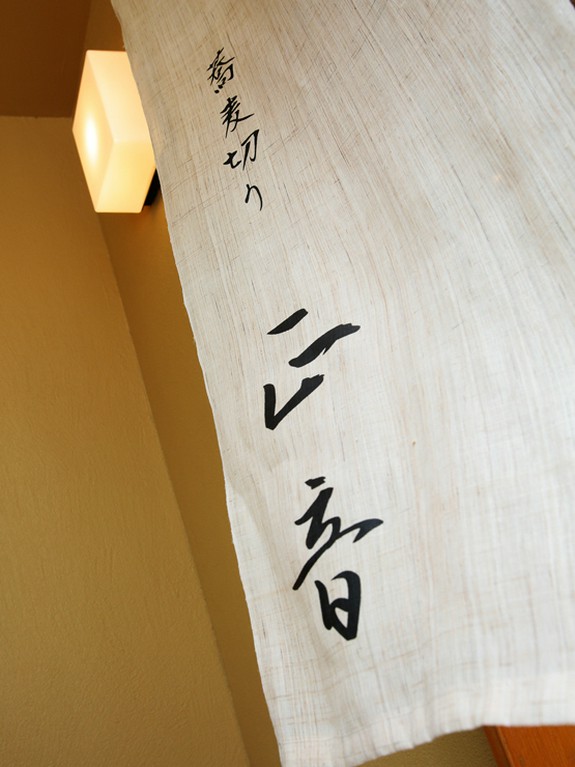 蕎麦切り
正音